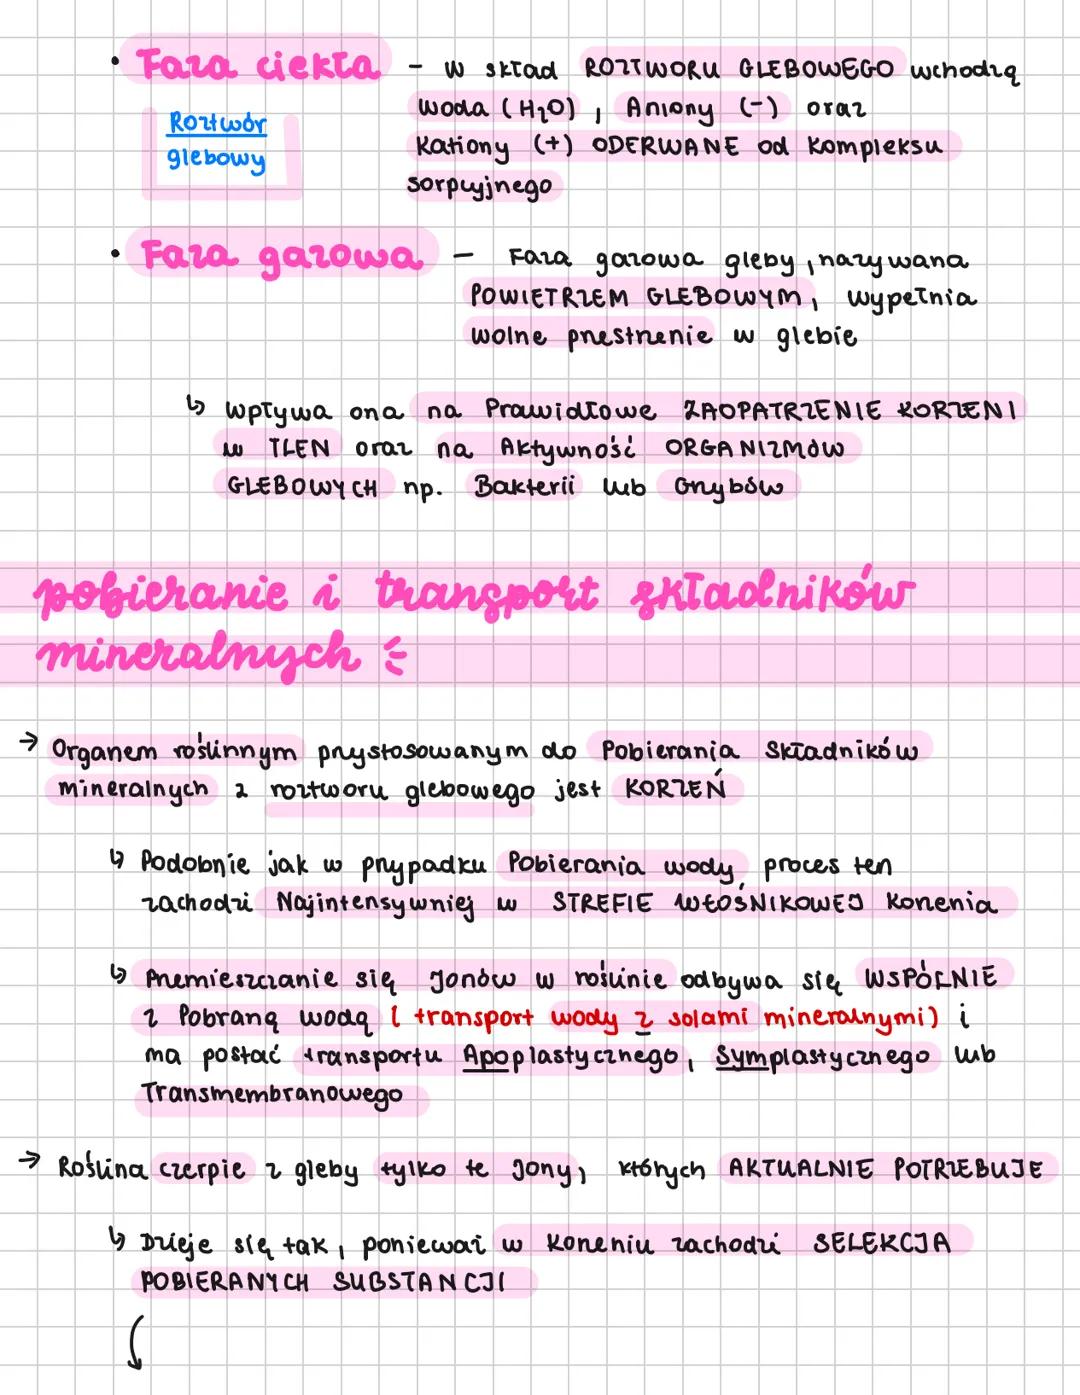 • Faza ciekła – w skład ROZTWORU GLEBOWEGO wchodzą
Roztwór glebowy
woda (H₂O), Aniony (-) oraz
Kationy (+) ODERWANE od kompleksu
sorpcyjnego
• Faza gazowa – Faza gazowa gleby, nazywana
POWIETRZEM GLEBOWYM, wypełnia
wolne przestrzenie w glebie
↳ wpływa ona na Prawidłowe ZAOPATRZENIE KORZENI
w TLEN oraz na Aktywność ORGANIZMÓW
GLEBOWYCH np. Bakterii lub Grzybów
pobieranie i transport składników
mineralnych
→ Organem roślinnym przystosowanym do Pobierania Składników
mineralnych z roztworu glebowego jest KORZEŃ
↳ Podobnie jak w przypadku Pobierania wody, proces ten
zachodzi Najintensywniej w STREFIE WŁOŚNIKOWEJ Korzenia
↳ Przemieszczanie się Jonów w roślinie odbywa się WSPÓLNIE
z Pobraną wodą (transport wody z solami mineralnymi) i
ma postać transportu Apoplastycznego, Symplastycznego lub
Transmembranowego
→ Roślina czerpie z gleby tylko te Jony, których AKTUALNIE POTRZEBUJE
↳ Dzieje się tak, ponieważ w Korzeniu zachodzi SELEKCJA
POBIERANYCH SUBSTANCJI